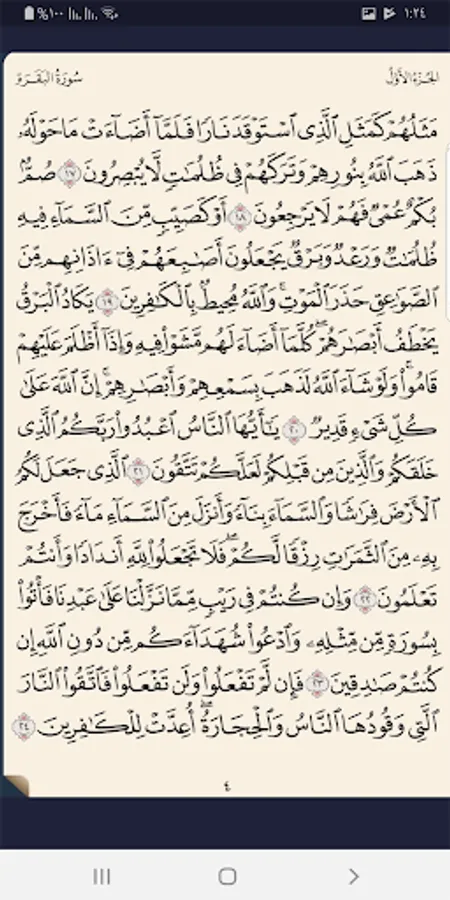 %١٠٠ ١:٢٤
سُورَةُ البَقَرَةِ الجُزءُ الأَوَّلُ
مَثَلُهُمْ كَمَثَلِ ٱلَّذِى ٱسْتَوْقَدَ نَارًا فَلَمَّآ أَضَآءَتْ مَا حَوْلَهُۥ
ذَهَبَ ٱللَّهُ بِنُورِهِمْ وَتَرَكَهُمْ فِى ظُلُمَٰتٍ لَّا يُبْصِرُونَ ١٧ صُمٌّۢ
بُكْمٌ عُمْىٌ فَهُمْ لَا يَرْجِعُونَ ١٨ أَوْ كَصَيِّبٍ مِّنَ ٱلسَّمَآءِ فِيهِ
ظُلُمَٰتٌ وَرَعْدٌ وَبَرْقٌ يَجْعَلُونَ أَصَٰبِعَهُمْ فِىٓ ءَاذَانِهِم مِّنَ
ٱلصَّوَٰعِقِ حَذَرَ ٱلْمَوْتِ ۚ وَٱللَّهُ مُحِيطٌۢ بِٱلْكَٰفِرِينَ ١٩ يَكَادُ ٱلْبَرْقُ
يَخْطَفُ أَبْصَٰرَهُمْ ۖ كُلَّمَآ أَضَآءَ لَهُم مَّشَوْا۟ فِيهِ وَإِذَآ أَظْلَمَ عَلَيْهِمْ
قَامُوا۟ ۚ وَلَوْ شَآءَ ٱللَّهُ لَذَهَبَ بِسَمْعِهِمْ وَأَبْصَٰرِهِمْ ۚ إِنَّ ٱللَّهَ عَلَىٰ
كُلِّ شَىْءٍ قَدِيرٌ ٢٠ يَٰٓأَيُّهَا ٱلنَّاسُ ٱعْبُدُوا۟ رَبَّكُمُ ٱلَّذِى
خَلَقَكُمْ وَٱلَّذِينَ مِن قَبْلِكُمْ لَعَلَّكُمْ تَتَّقُونَ ٢١ ٱلَّذِى جَعَلَ لَكُمُ
ٱلْأَرْضَ فِرَٰشًا وَٱلسَّمَآءَ بِنَآءً وَأَنزَلَ مِنَ ٱلسَّمَآءِ مَآءً فَأَخْرَجَ
بِهِۦ مِنَ ٱلثَّمَرَٰتِ رِزْقًا لَّكُمْ ۖ فَلَا تَجْعَلُوا۟ لِلَّهِ أَندَادًا وَأَنتُمْ
تَعْلَمُونَ ٢٢ وَإِن كُنتُمْ فِى رَيْبٍ مِّمَّا نَزَّلْنَا عَلَىٰ عَبْدِنَا فَأْتُوا۟
بِسُورَةٍ مِّن مِّثْلِهِۦ وَٱدْعُوا۟ شُهَدَآءَكُم مِّن دُونِ ٱللَّهِ إِن
كُنتُمْ صَٰدِقِينَ ٢٣ فَإِن لَّمْ تَفْعَلُوا۟ وَلَن تَفْعَلُوا۟ فَٱتَّقُوا۟ ٱلنَّارَ
ٱلَّتِى وَقُودُهَا ٱلنَّاسُ وَٱلْحِجَارَةُ ۖ أُعِدَّتْ لِلْكَٰفِرِينَ ٢٤
٤